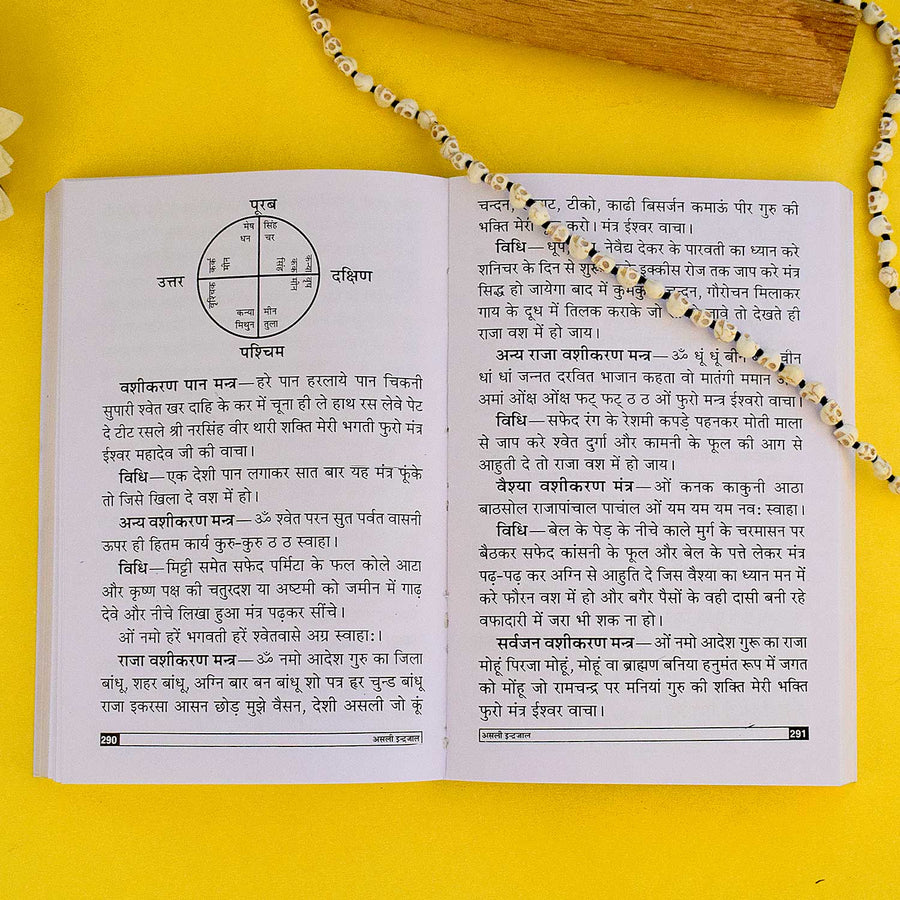 पूरब
मेष सिंह
धन चर
कर्क मीन
सिंह कर्क मीन
कन्या
उत्तर
दक्षिण
वृश्चिक
कन्या मीन
मिथुन तुला
पश्चिम
वशीकरण पान मन्त्र—हरे पान हरलाये पान चिकनी
सुपारी श्वेत खर दाहि के कर में चूना ही ले हाथ रस लेवे पेट
दे टीट रसले श्री नरसिंह वीर थारी शक्ति मेरी भगती फुरो मंत्र
ईश्वर महादेव जी की वाचा।
विधि—एक देशी पान लगाकर सात बार यह मंत्र फूंके
तो जिसे खिला दे वश में हो।
अन्य वशीकरण मन्त्र—ॐ श्वेत परन सुत पर्वत वासनी
ऊपर ही हितम कार्य कुरु-कुरु ठ ठ स्वाहा।
विधि—मिट्टी समेत सफेद पर्मिटा के फल कोले आटा
और कृष्ण पक्ष की चतुरदश या अष्टमी को जमीन में गाढ़
देवे और नीचे लिखा हुआ मंत्र पढ़कर सींचे।
ओं नमो हरें भगवती हरें श्वेतवासे अग्र स्वाहा:।
राजा वशीकरण मन्त्र—ॐ नमो आदेश गुरु का जिला
बांधू, शहर बांधू, अग्नि बार बन बांधू शो पत्र हर चुन्ड बांधू
राजा इकरसा आसन छोड़ मुझे वैसन, देशी असली जो कूं
290 असली इन्द्रजाल
चन्दन, टीको, काढी बिसर्जन कमाऊं पीर गुरु की
भक्ति मेरी करो। मंत्र ईश्वर वाचा।
विधि—धूप, नेवैद्य देकर के पारवती का ध्यान करे
शनिचर के दिन से शुरू इक्कीस रोज तक जाप करे मंत्र
सिद्ध हो जायेगा बाद में कुमकुम चन्दन, गौरोचन मिलाकर
गाय के दूध में तिलक कराके जो जावे तो देखते ही
राजा वश में हो जाय।
अन्य राजा वशीकरण मन्त्र—ॐ धूं धूं बीन बीन
धां धां जन्नत दरवित भाजान कहता वो मातंगी ममान
अमां ओंक्ष ओंक्ष फट् फट् ठ ठ ओं फुरो मन्त्र ईश्वरो वाचा।
विधि—सफेद रंग के रेशमी कपड़े पहनकर मोती माला
से जाप करे श्वेत दुर्गा और कामनी के फूल की आग से
आहुती दे तो राजा वश में हो जाय।
वैश्या वशीकरण मंत्र—ओं कनक काकुनी आठा
बाठसोल राजापांचाल पाचोल ओं यम यम यम नव: स्वाहा।
विधि—बेल के पेड़ के नीचे काले मुर्ग के चरमासन पर
बैठकर सफेद कांसनी के फूल और बेल के पत्ते लेकर मंत्र
पढ़-पढ़ कर अग्नि से आहुति दे जिस वैश्या का ध्यान मन में
करे फौरन वश में हो और बगैर पैसों के वही दासी बनी रहे
वफादारी में जरा भी शक ना हो।
सर्वजन वशीकरण मन्त्र—ओं नमो आदेश गुरू का राजा
मोहूं पिरजा मोहूं, मोहूं वा ब्राह्मण बनिया हनुमंत रूप में जगत
को मोंहू जो रामचन्द्र पर मनियां गुरु की शक्ति मेरी भक्ति
फुरो मंत्र ईश्वर वाचा।
असली इन्द्रजाल 291